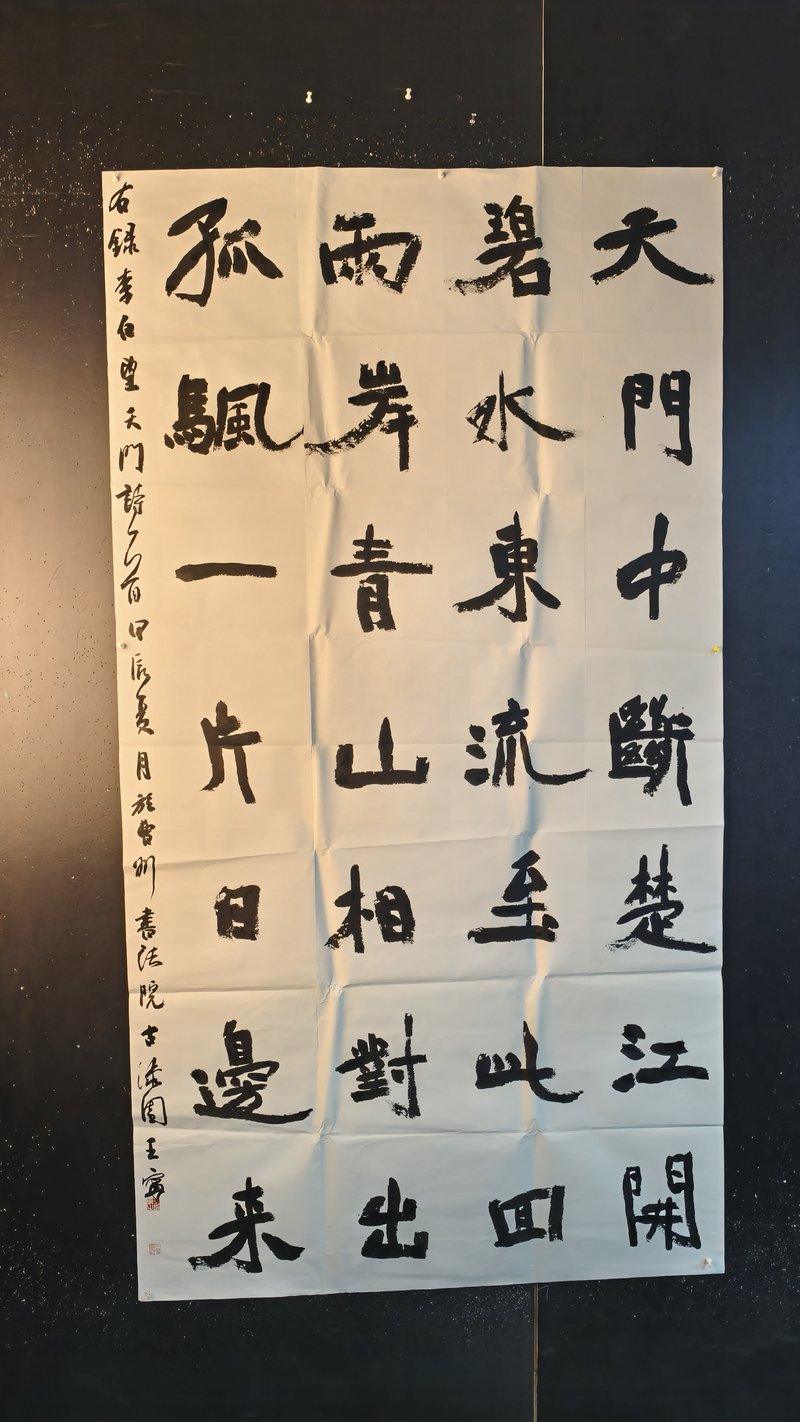 天門中斷楚江開
碧水東流至此回
兩岸青山相對出
孤颿一片日邊来
右録李白望天門詩一首甲辰夏月於曹州書法院古漆園王